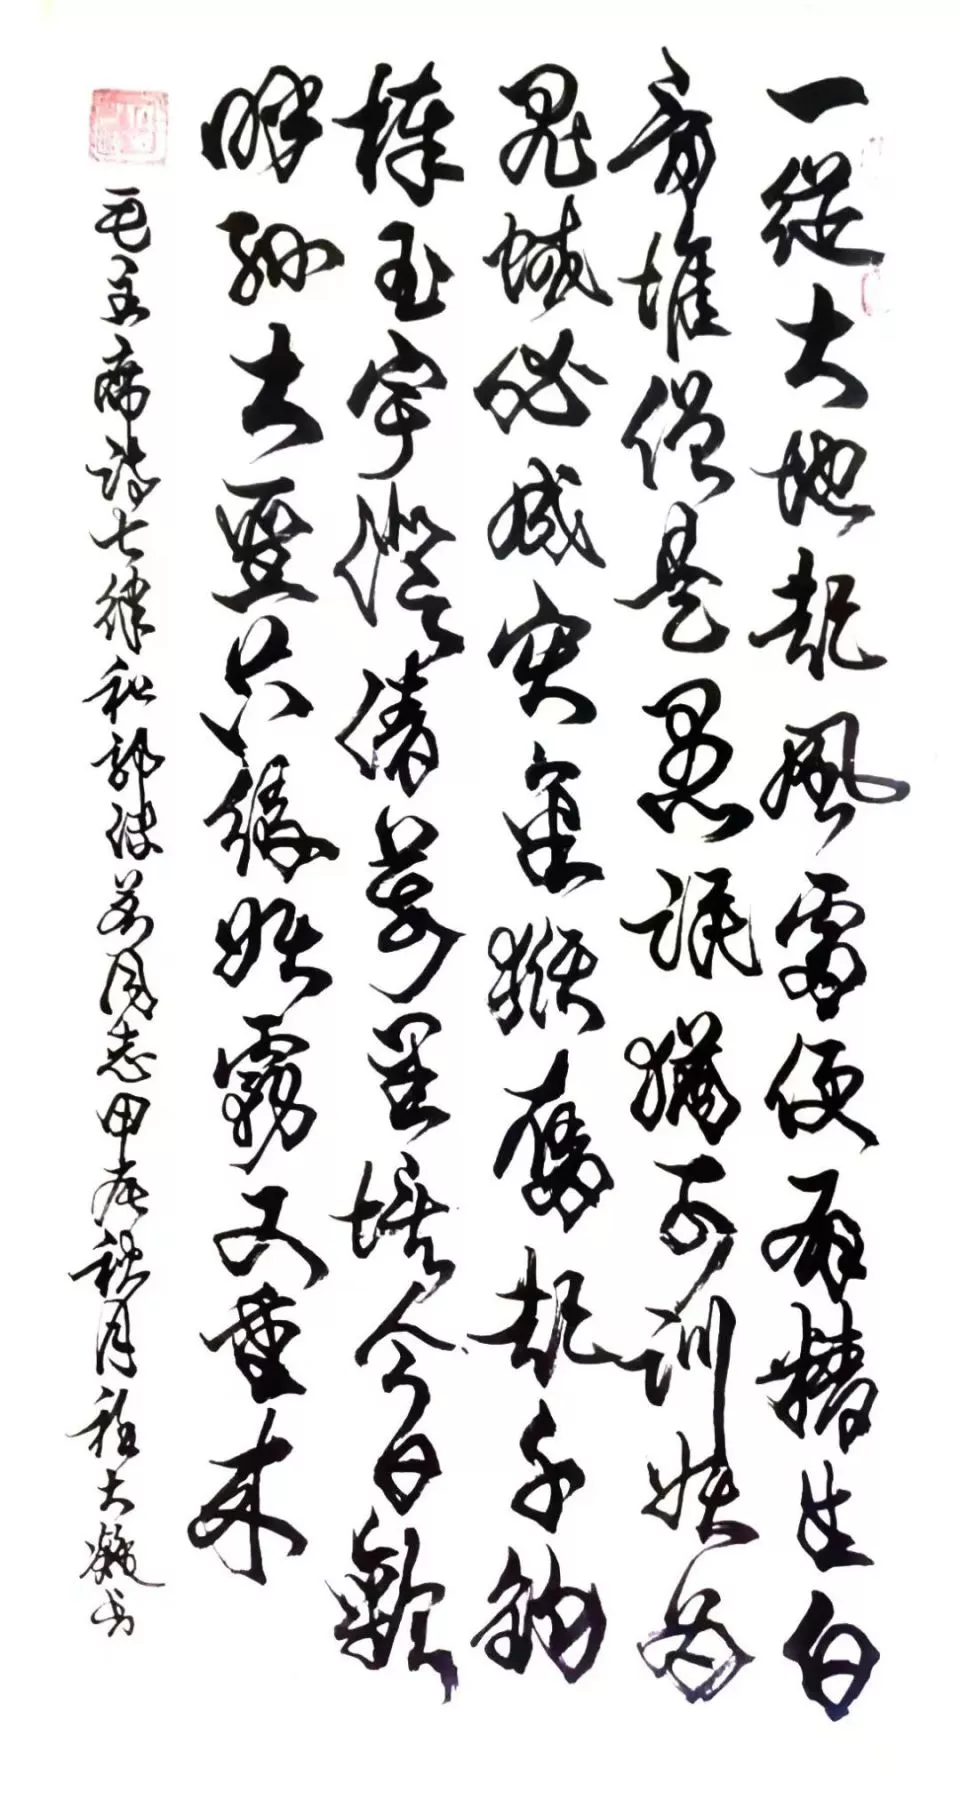 一從大地起風雷便有精生白
骨堆僧是愚氓猶可訓妖為
鬼蜮必成災金猴奮起千鈞
棒玉宇澄清萬里埃今日歡
呼孫大聖只緣妖霧又重来
毛主席诗七律和郭沫若同志甲辰秋月程大书